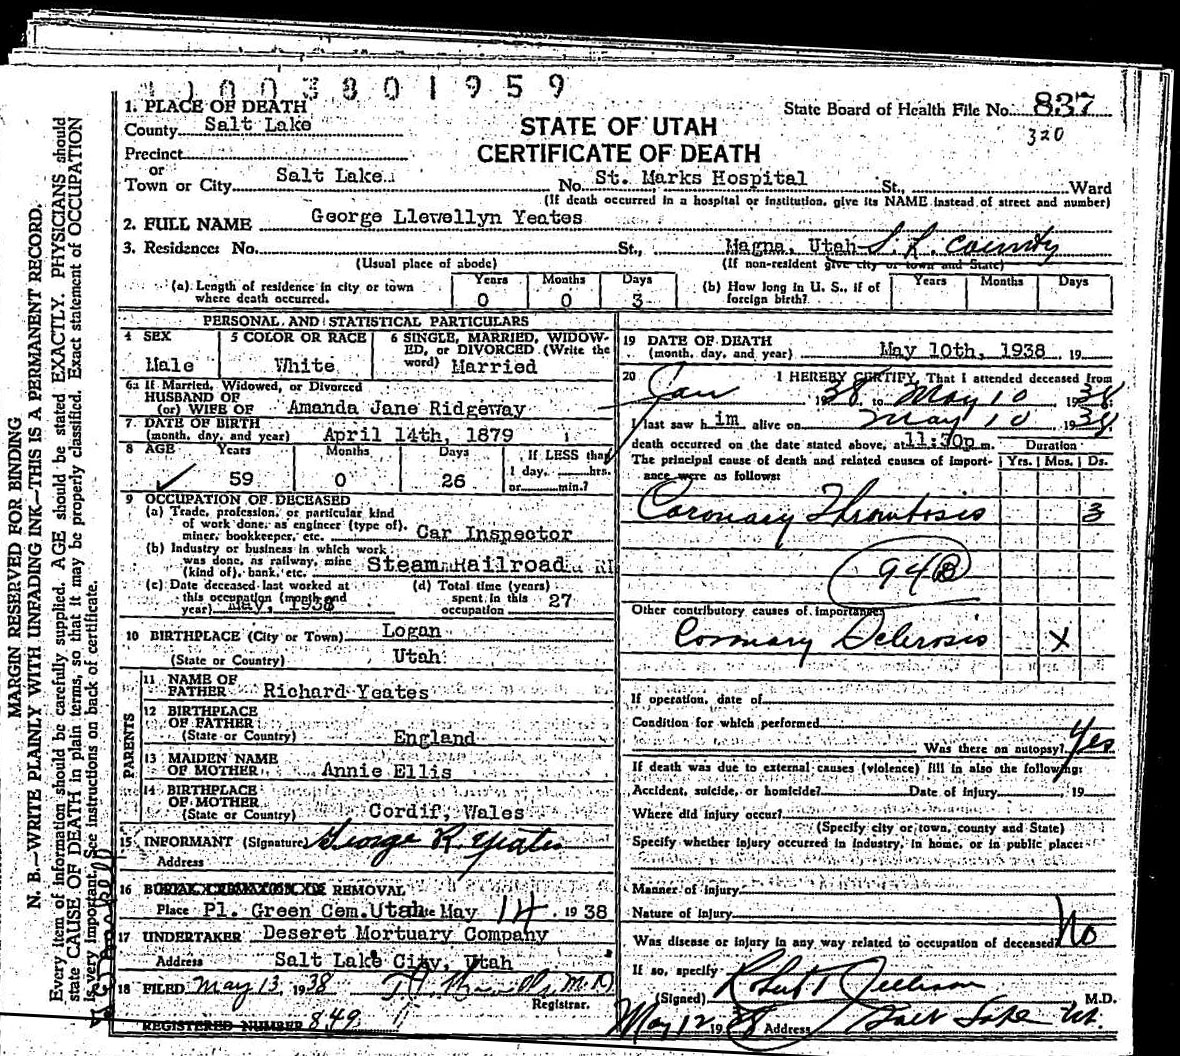 1 0 0 3 8 0 1 9 5 9
State Board of Health File No. 837
320
STATE OF UTAH
CERTIFICATE OF DEATH
1. PLACE OF DEATH
County Salt Lake
Precinct
or
Town or City Salt Lake No. St. Marks Hospital St., Ward
(If death occurred in a hospital or institution, give its NAME instead of street and number)
2. FULL NAME George Llewellyn Yeates
3. Residence: No. St., Magna, Utah S. L. County
(Usual place of abode) (If non-resident give city or town and State)
(a) Length of residence in city or town where death occurred. Years 0 Months 0 Days 3
(b) How long in U. S., if of foreign birth? Years Months Days
PERSONAL AND STATISTICAL PARTICULARS
4 SEX Male
5 COLOR OR RACE White
6 SINGLE, MARRIED, WIDOWED, or DIVORCED (Write the word) Married
6a If Married, Widowed, or Divorced
HUSBAND OF
(or) WIFE OF Amanda Jane Ridgeway
7 DATE OF BIRTH
(month, day, and year) April 14th, 1879
8 AGE Years 59 Months 0 Days 26 If LESS than 1 day, hrs. or min.?
9 OCCUPATION OF DECEASED
(a) Trade, profession, or particular kind
of work done, as engineer (type of),
miner, bookkeeper, etc. Car Inspector
(b) Industry or business in which work
was done, as railway, mine
(kind of), bank, etc. Steam Railroad
(c) Date deceased last worked at
this occupation (month and
year) May, 1938
(d) Total time (years)
spent in this
occupation 27
10 BIRTHPLACE (City or Town) Logan
(State or Country) Utah
PARENTS
11 NAME OF
FATHER Richard Yeates
12 BIRTHPLACE
OF FATHER
(State or Country) England
13 MAIDEN NAME
OF MOTHER Annie Ellis
14 BIRTHPLACE
OF MOTHER
(State or Country) Cordif, Wales
15 INFORMANT (Signature) George R. Yeates
Address
16 BURIAL, CREMATION, OR REMOVAL
Place Pl. Green Cem. Utah Date May 14, 1938
17 UNDERTAKER Deseret Mortuary Company
Address Salt Lake City, Utah
18 FILED May 13, 1938 M.D.
Registrar.
REGISTERED NUMBER 849
19 DATE OF DEATH
(month, day, and year) May 10th, 1938 19
20 I HEREBY CERTIFY, That I attended deceased from
Jan 1938, to May 10 1938
I last saw him alive on May 10 1938
death occurred on the date stated above, at 11:30p m.
The principal cause of death and related causes of importance were as follows:
Duration
Yrs. Mos. Ds.
Coronary Thrombosis 3
94B
Other contributory causes of importance:
Coronary Sclerosis X
If operation, date of
Condition for which performed
Was there an autopsy? Yes
If death was due to external causes (violence) fill in also the following:
Accident, suicide, or homicide? Date of injury 19
Where did injury occur?
(Specify city or town, county and State)
Specify whether injury occurred in industry, in home, or in public place:
Manner of injury
Nature of injury
Was disease or injury in any way related to occupation of deceased? No
If so, specify
(Signed) Robert M.D.
May 12 1938 Address Salt Lake Ut.
MARGIN RESERVED FOR BINDING
N. B.—WRITE PLAINLY WITH UNFADING INK—THIS IS A PERMANENT RECORD.
Every item of information should be carefully supplied. AGE should be stated EXACTLY. PHYSICIANS should
state CAUSE OF DEATH in plain terms, so that it may be properly classified. Exact statement of OCCUPATION
is very important. See instructions on back of certificate.